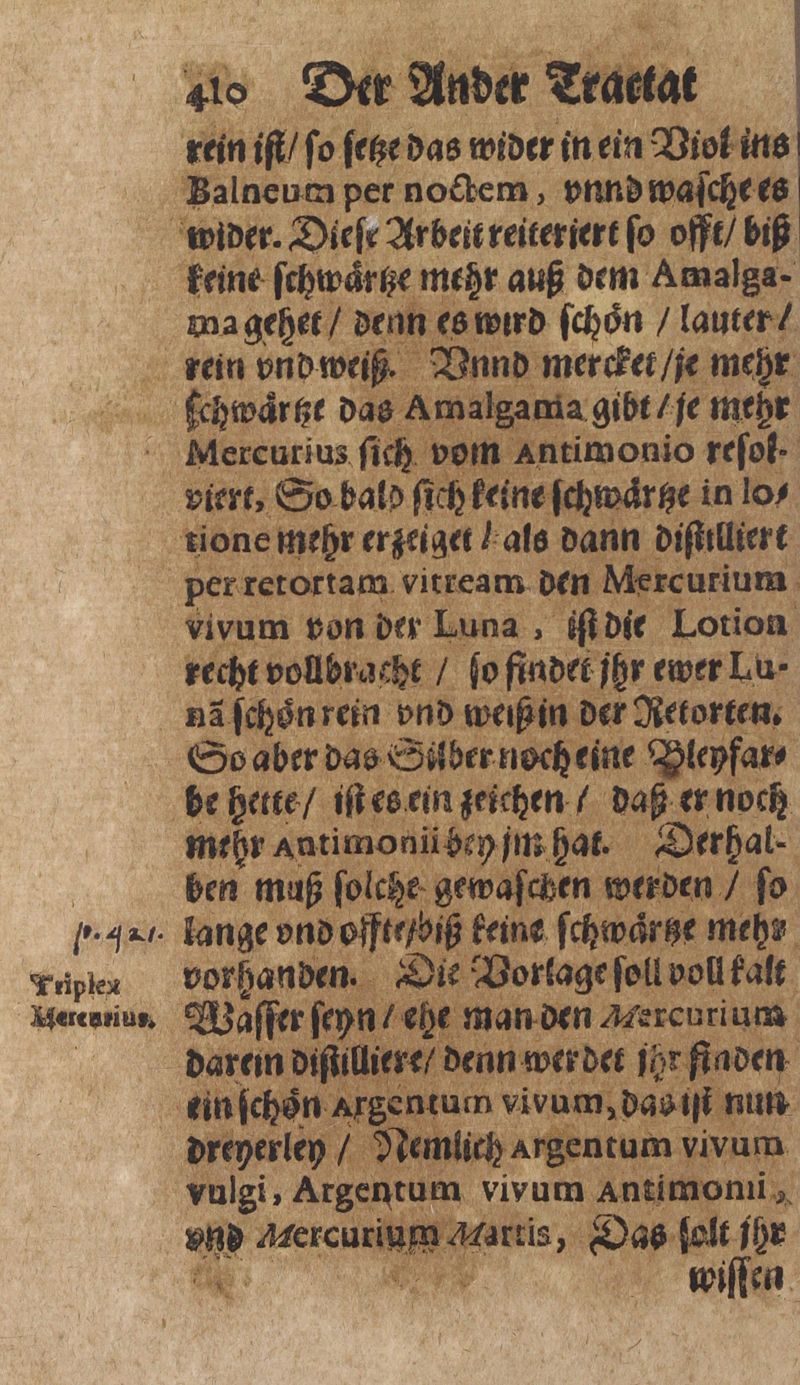 410 Der Ander Tractat
rein iſt/ ſo ſetze das wider in ein Viol ins
Balneum per noctem, vnnd waſche es
wider. Dieſe Arbeit reiteriert ſo offt/ biß
keine ſchwaͤrtze mehr auß dem Amalga-
ma gehet / denn es wird ſchoͤn / lauter /
rein vnd weiß. Vnnd mercket /je mehr
ſchwaͤrtze das Amalgama gibt / je mehr
Mercurius ſich vom Antimonio reſol-
viert, So bald ſich keine ſchwaͤrtze in lo-
tione mehr erzeiget / als dann diſtilliert
per retortam vitream den Mercurium
vivum von der Luna, iſt die Lotion
recht vollbracht / ſo findet jhr ewer Lu-
nã ſchoͤn rein vnd weiß in der Retorten.
So aber das Silber noch eine Bleyfar-
be hette/ iſt es ein zeichen / daß er noch
mehr Antimonii bey jm hat. Derhal-
ben muß ſolche gewaſchen werden / ſo
lange vnd offte/biß keine ſchwaͤrtze mehr
p. 421.
vorhanden. Die Vorlage ſoll voll kalt
Triplex
Mercurius.
Waſſer ſeyn / ehe man den Mercurium
darein diſtilliere/ denn werdet jhr finden
ein ſchoͤn Argentum vivum, das iſt nun
dreyerley / Nemlich Argentum vivum
vulgi, Argentum vivum Antimonii,
vnd Mercurium Martis, Das ſolt jhr
wiſſen